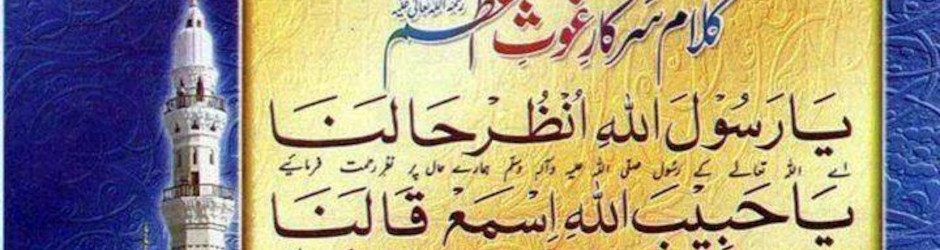 کلام سرکار غوث اعظم رحمۃ اللہ تعالیٰ علیہ
يَا رَسُوْلَ اللهِ اُنْظُرْ حَالَنَا
اے اللہ تعالے کے رسول صلی اللہ علیہ وآلہ وسلم ہمارے حال پر نظر رحمت فرمائیے
يَا حَبِيْبَ اللهِ اِسْمَعْ قَالَنَا